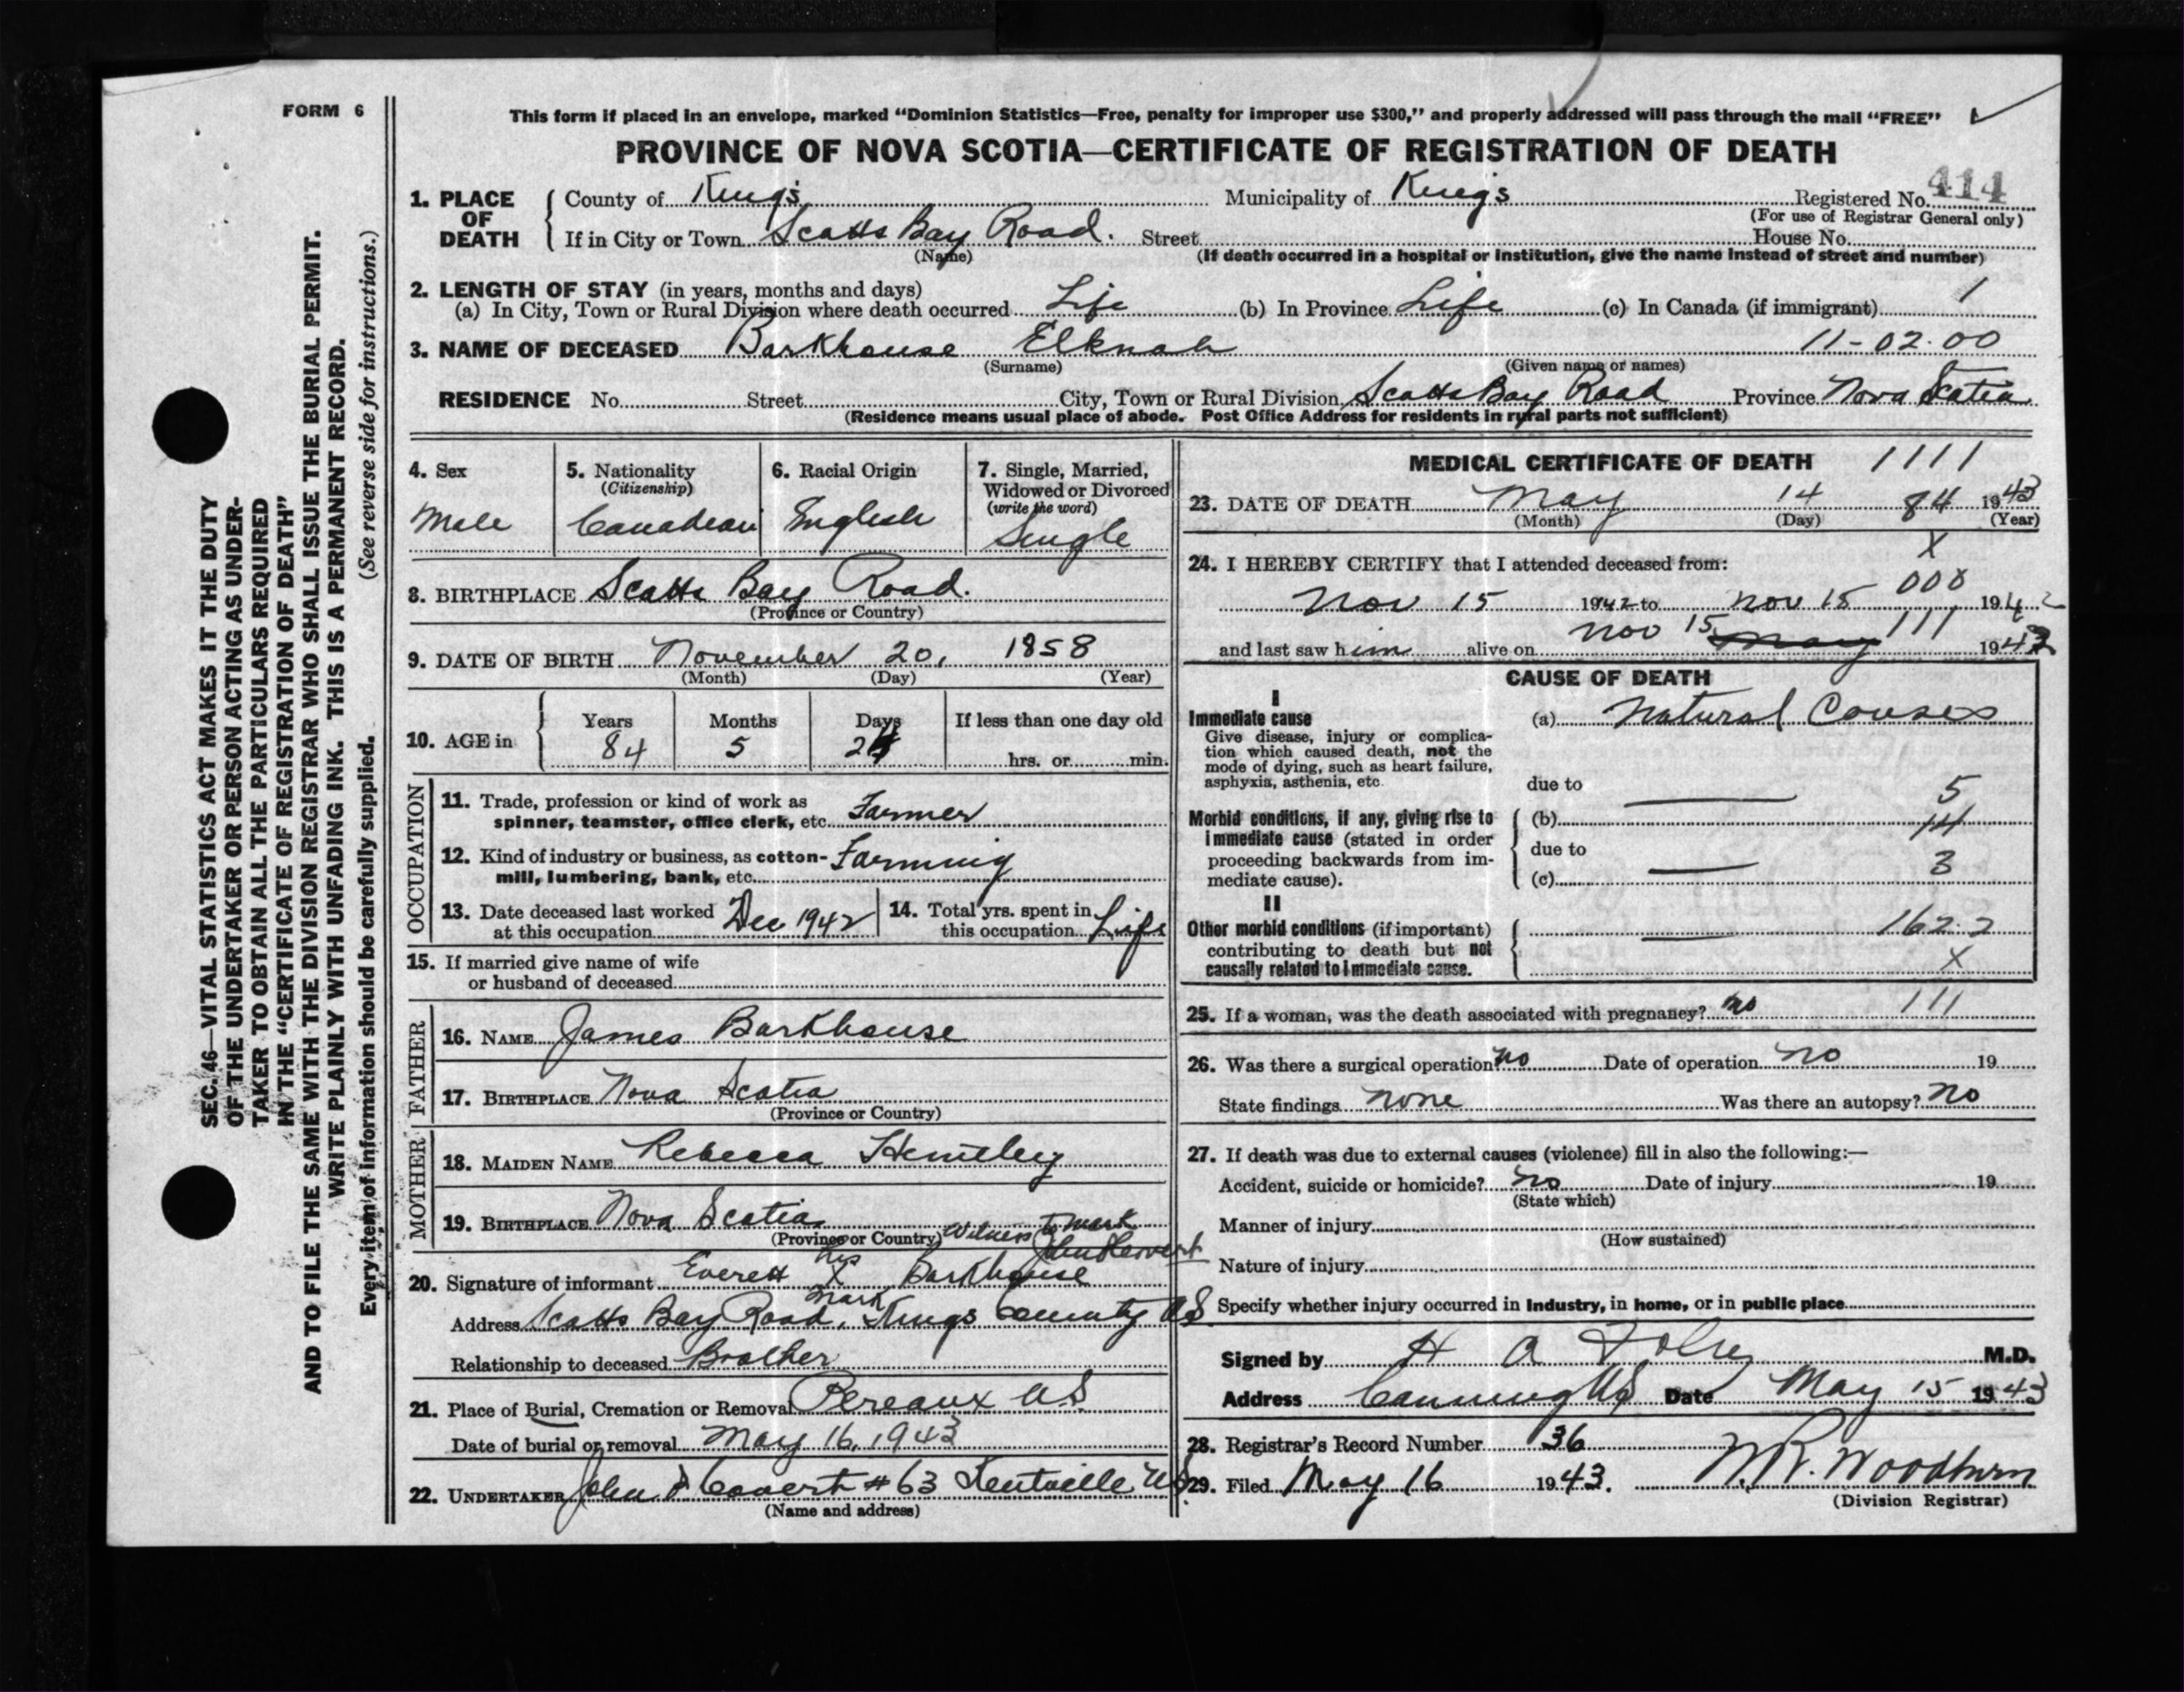 FORM 6
This form if placed in an envelope, marked “Dominion Statistics—Free, penalty for improper use $300,” and properly addressed will pass through the mail “FREE”
PROVINCE OF NOVA SCOTIA—CERTIFICATE OF REGISTRATION OF DEATH
SEC. 46—VITAL STATISTICS ACT MAKES IT THE DUTY
OF THE UNDERTAKER OR PERSON ACTING AS UNDER-
TAKER TO OBTAIN ALL THE PARTICULARS REQUIRED
IN THE “CERTIFICATE OF REGISTRATION OF DEATH”
AND TO FILE THE SAME WITH THE DIVISION REGISTRAR WHO SHALL ISSUE THE BURIAL PERMIT.
WRITE PLAINLY WITH UNFADING INK. THIS IS A PERMANENT RECORD.
Every item of information should be carefully supplied. (See reverse side for instructions.)
1. PLACE OF DEATH
County of Kings Municipality of Kings Registered No. 414
(For use of Registrar General only)
If in City or Town Scotts Bay Road. Street House No.
(Name) (If death occurred in a hospital or institution, give the name instead of street and number)
2. LENGTH OF STAY (in years, months and days)
(a) In City, Town or Rural Division where death occurred Life (b) In Province Life (c) In Canada (if immigrant) 1
3. NAME OF DECEASED Barkhouse Elknah 11-02.00
(Surname) (Given name or names)
RESIDENCE No. Street City, Town or Rural Division Scotts Bay Road Province Nova Scotia
(Residence means usual place of abode. Post Office Address for residents in rural parts not sufficient)
4. Sex
Male
5. Nationality
(Citizenship)
Canadian
6. Racial Origin
English
7. Single, Married,
Widowed or Divorced
(write the word)
Single
8. BIRTHPLACE Scotts Bay Road.
(Province or Country)
9. DATE OF BIRTH November 20, 1858
(Month) (Day) (Year)
10. AGE in
Years Months Days If less than one day old
84 5 24 hrs. or min.
OCCUPATION
11. Trade, profession or kind of work as
spinner, teamster, office clerk, etc. Farmer
12. Kind of industry or business, as cotton-
mill, lumbering, bank, etc. Farming
13. Date deceased last worked
at this occupation Dec 1942
14. Total yrs. spent in
this occupation Life
15. If married give name of wife
or husband of deceased
FATHER
16. NAME James Barkhouse
17. BIRTHPLACE Nova Scotia
(Province or Country)
MOTHER
18. MAIDEN NAME Rebecca Huntley
19. BIRTHPLACE Nova Scotia
(Province or Country) Witness to mark
20. Signature of informant Everett his X mark Barkhouse
Address Scotts Bay Road, Kings County NS
Relationship to deceased Brother
21. Place of Burial, Cremation or Removal Pereaux NS
Date of burial or removal May 16, 1943
22. UNDERTAKER John D Covert #63 Kentville NS.
(Name and address)
MEDICAL CERTIFICATE OF DEATH 1111
23. DATE OF DEATH May 14 84 1943
(Month) (Day) (Year)
X
24. I HEREBY CERTIFY that I attended deceased from:
000
Nov 15 1942 to Nov 15 1942
and last saw him alive on Nov 15 May 111 1942
CAUSE OF DEATH
I
Immediate cause
Give disease, injury or complica-
tion which caused death, not the
mode of dying, such as heart failure,
asphyxia, asthenia, etc.
(a) Natural Causes
due to
5
Morbid conditions, if any, giving rise to
immediate cause (stated in order
proceeding backwards from im-
mediate cause).
(b) 14
due to
3
(c)
II
Other morbid conditions (if important)
contributing to death but not
causally related to immediate cause.
162.2
X
25. If a woman, was the death associated with pregnancy? no 111
26. Was there a surgical operation? no Date of operation no 19
State findings none Was there an autopsy? no
27. If death was due to external causes (violence) fill in also the following:—
Accident, suicide or homicide? no Date of injury 19
(State which)
Manner of injury
(How sustained)
Nature of injury
Specify whether injury occurred in industry, in home, or in public place
Signed by H A M.D.
Address Canning NS Date May 15 1943
28. Registrar's Record Number 36
29. Filed May 16 1943. W.R. Woodburn
(Division Registrar)